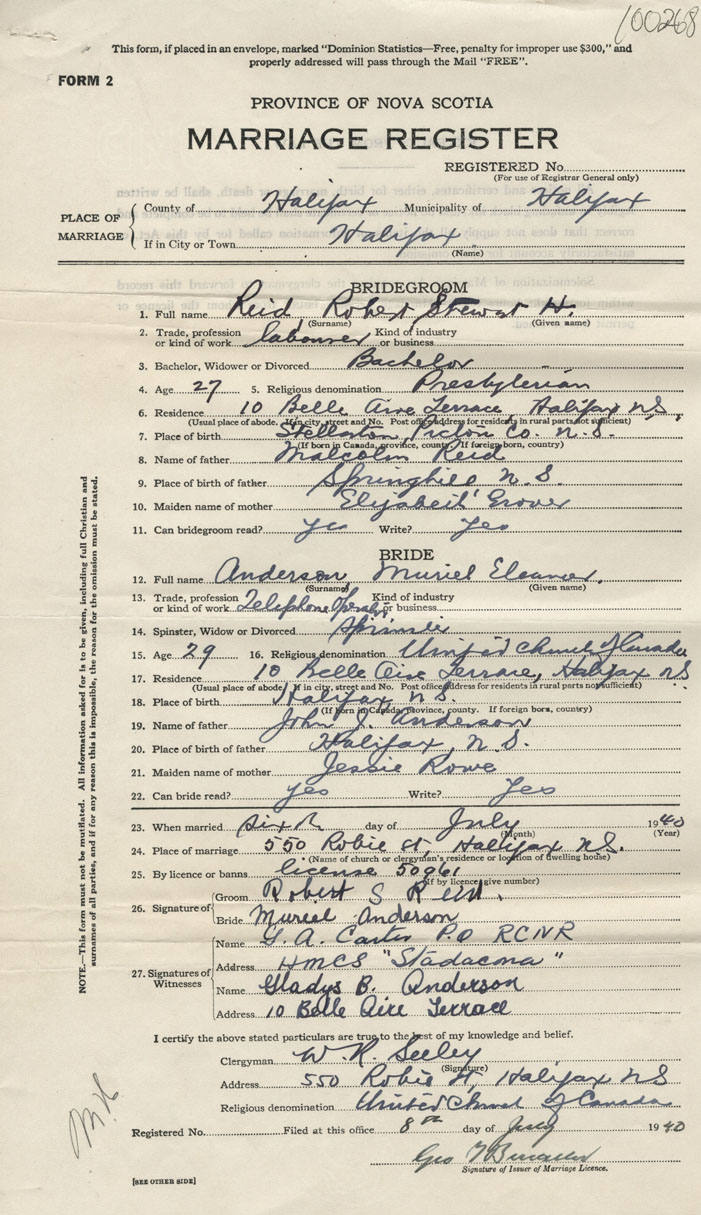 100268
This form, if placed in an envelope, marked "Dominion Statistics—Free, penalty for improper use $300," and
properly addressed will pass through the Mail "FREE".
FORM 2
PROVINCE OF NOVA SCOTIA
MARRIAGE REGISTER
REGISTERED No.
(For use of Registrar General only)
PLACE OF MARRIAGE
County of Halifax Municipality of Halifax
If in City or Town Halifax
(Name)
BRIDEGROOM
1. Full name Reid Robert Stewart H.
(Surname) (Given name)
2. Trade, profession or kind of work labourer Kind of industry or business
3. Bachelor, Widower or Divorced Bachelor
4. Age 27 5. Religious denomination Presbyterian
6. Residence 10 Belle Aire Terrace Halifax NS
(Usual place of abode. If in city, street and No. Post office address for residents in rural parts not sufficient)
7. Place of birth Stellarton, Pictou Co. N.S.
(If born in Canada, province, county. If foreign born, country)
8. Name of father Malcolm Reid
9. Place of birth of father Springhill N.S.
10. Maiden name of mother Elizabeth Grover
11. Can bridegroom read? yes Write? yes
BRIDE
12. Full name Anderson, Muriel Eleanor.
(Surname) (Given name)
13. Trade, profession or kind of work Telephone Operator Kind of industry or business
14. Spinster, Widow or Divorced Spinster
15. Age 29 16. Religious denomination United Church of Canada
17. Residence 10 Belle Aire Terrace, Halifax NS
(Usual place of abode. If in city, street and No. Post office address for residents in rural parts not sufficient)
18. Place of birth Halifax, N.S.
(If born in Canada, province, county. If foreign born, country)
19. Name of father John J. Anderson
20. Place of birth of father Halifax, N.S.
21. Maiden name of mother Jessie Rowe
22. Can bride read? yes Write? Yes
23. When married sixth day of July 1940
(Month) (Year)
24. Place of marriage 550 Robie St, Halifax NS.
(Name of church or clergyman's residence or location of dwelling house)
25. By licence or banns license 50961
(If by licence give number)
26. Signature of
Groom Robert S Reid.
Bride Muriel Anderson
27. Signatures of Witnesses
Name G. A. Carter P.O RCNR
Address HMCS "Stadacona"
Name Gladys B. Anderson
Address 10 Belle Aire Terrace
I certify the above stated particulars are true to the best of my knowledge and belief.
Clergyman W. R. Seeley
(Signature)
Address 550 Robie St, Halifax NS
Religious denomination United Church of Canada
Registered No. Filed at this office 8th day of July 1940
Geo
Signature of Issuer of Marriage Licence.
[SEE OTHER SIDE]
NOTE.—This form must not be mutilated. All information asked for is to be given, including full Christian and
surnames of all parties, and if for any reason this is impossible, the reason for the omission must be stated.